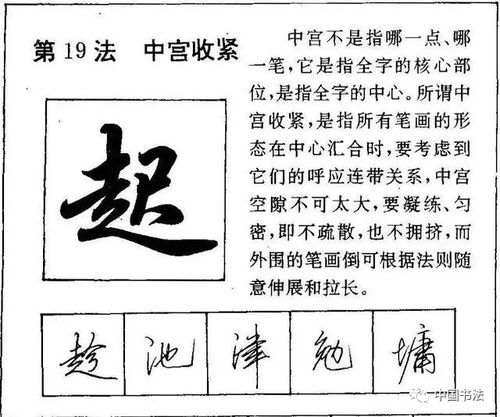 第19法 中宫收紧
起
中宫不是指哪一点、哪
一笔,它是指全字的核心部
位,是指全字的中心。所谓中
宫收紧,是指所有笔画的形
态在中心汇合时,要考虑到
它们的呼应连带关系,中宫
空隙不可太大,要凝练、匀
密,即不疏散,也不拥挤,而
外围的笔画倒可根据法则随
意伸展和拉长。
趁 池 津 勉 墉
中国书法